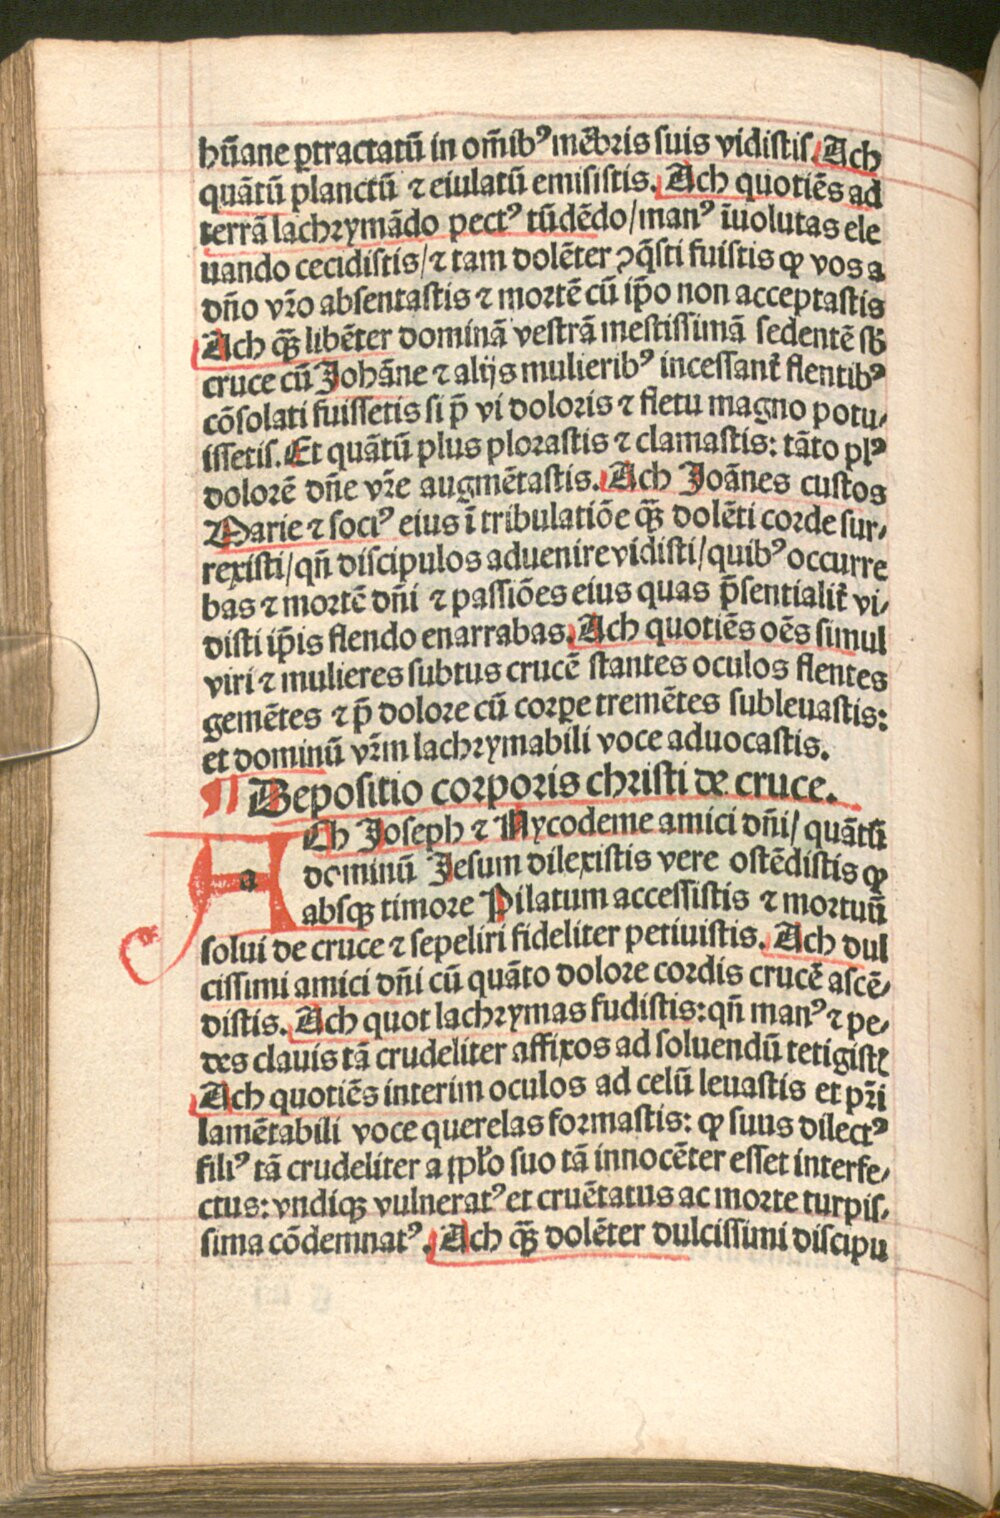 hūane ꝑtractatū in om̄ibꝰ mēbris suis vidistis. Ach
quātū planctū ⁊ eiulatū emisistis. Ach quotiēs ad
terrā lachrymādo pectꝰ tūdēdo/manꝰ īuolutas ele
uando cecidistis/⁊ tam dolēter ꝯq̄sti fuistis ꝙ vos a
dn̄o vr̄o absentastis ⁊ mortē cū ip̄o non acceptastis
Ach qꝫ̄ libēter dominā vestrā mestissimā sedentē sb̄
cruce cū Johāne ⁊ alijs mulieribꝰ incessant̄ flentibꝰ
cōsolati fuissetis si p̄ vi doloris ⁊ fletu magno potu⸗
issetis. Et quātū plus plorastis ⁊ clamastis: tāto plꝰ
dolorē dn̄e vr̄e augmētastis. Ach Joānes custos
Marie ⁊ sociꝰ eius ī tribulatiōe qꝫ̄ dolēti corde sur⸗
rexisti/qn̄ discipulos aduenire vidisti/quibꝰ occurre
bas ⁊ mortē dn̄i ⁊ passiōes eius quas p̄sentialit̄ vi⸗
disti ip̄is flendo enarrabas. Ach quotiēs oēs simul
viri ⁊ mulieres subtus crucē stantes oculos flentes
gemētes ⁊ p̄ dolore cū corꝑe tremētes subleuastis:
et dominū vr̄m lachrymabili voce aduocastis.
¶ Depositio corporis christi de cruce.
aCh Joseph ⁊ Nycodeme amici dn̄i/ quātū
dominū Jesum dilexistis vere ostēdistis ꝙ
absqꝫ timore Pilatum accessistis ⁊ mortuū
solui de cruce ⁊ sepeliri fideliter petiuistis. Ach dul
cissimi amici dn̄i cū quāto dolore cordis crucē ascē⸗
distis. Ach quot lachrymas fudistis: qn̄ manꝰ ⁊ pe⸗
des clauis tā crudeliter affixos ad soluendū tetigistꝭ
Ach quotiēs interim oculos ad celū leuastis et pr̄i
lamētabili voce querelas formastis: ꝙ suus dilectꝰ
filiꝰ tā crudeliter a ppl̄o suo tā innocēter esset interfe⸗
ctus: vndiqꝫ vulneratꝰ et cruētatus ac morte turpis⸗
sima cōdemnatꝰ. Ach qꝫ̄ dolēter dulcissimi discipu